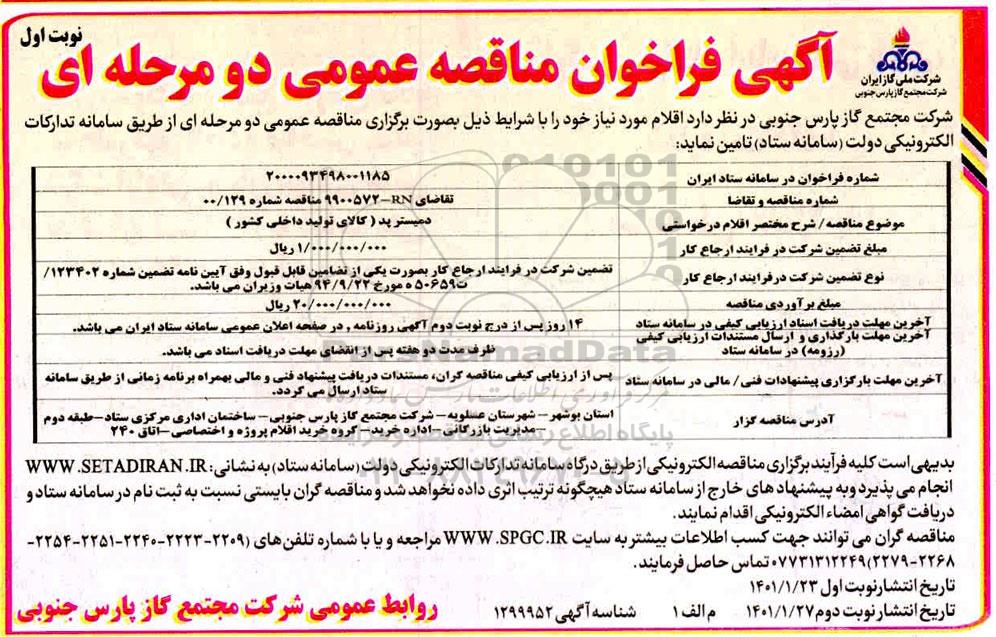 نوبت اول
آگهی فراخوان مناقصه عمومی دو مرحله ای
شرکت ملی گاز ایران
شرکت مجتمع گاز پارس جنوبی
شرکت مجتمع گاز پارس جنوبی در نظر دارد اقلام مورد نیاز خود را با شرایط ذیل بصورت برگزاری مناقصه عمومی دو مرحله ای از طریق سامانه تدارکات
الکترونیکی دولت (سامانه ستاد) تامین نماید:
شماره فراخوان در سامانه ستاد ایران ۲۰۰۰۰۹۳۴۹۸۰۰۱۱۸۵
شماره مناقصه و تقاضا تقاضای RN-۹۹۰۰۵۷۲ مناقصه شماره ۰۰/۱۲۹
موضوع مناقصه/ شرح مختصر اقلام درخواستی دمیستر پد ( کالای تولید داخلی کشور )
مبلغ تضمین شرکت در فرایند ارجاع کار ۱/۰۰۰/۰۰۰/۰۰۰ ریال
نوع تضمین شرکت در فرایند ارجاع کار تضمین شرکت در فرایند ارجاع کار بصورت یکی از تضامین قابل قبول وفق آیین نامه تضمین شماره ۱۲۳۴۰۲/
ت۵۰۶۵۹ ه مورخ ۹۴/۹/۲۲ هیات وزیران می باشد.
مبلغ برآوردی مناقصه ۲۰/۰۰۰/۰۰۰/۰۰۰ ریال
آخرین مهلت دریافت اسناد ارزیابی کیفی در سامانه ستاد ۱۴ روز پس از درج نوبت دوم آگهی روزنامه , در صفحه اعلان عمومی سامانه ستاد ایران می باشد.
آخرین مهلت بارگذاری و ارسال مستندات ارزیابی کیفی
(رزومه) در سامانه ستاد ظرف مدت دو هفته پس از انقضای مهلت دریافت اسناد می باشد.
آخرین مهلت بارگزاری پیشنهادات فنی/ مالی در سامانه ستاد پس از ارزیابی کیفی مناقصه گران، مستندات دریافت پیشنهاد فنی و مالی بهمراه برنامه زمانی از طریق سامانه
ستاد ارسال می گردد.
آدرس مناقصه گزار استان بوشهر – شهرستان عسلویه – شرکت مجتمع گاز پارس جنوبی – ساختمان اداری مرکزی ستاد – طبقه دوم
– مدیریت بازرگانی – اداره خرید – گروه خرید اقلام پروژه و اختصاصی – اتاق ۲۴۰
بدیهی است کلیه فرآیند برگزاری مناقصه الکترونیکی از طریق درگاه سامانه تدارکات الکترونیکی دولت (سامانه ستاد) به نشانی: WWW.SETADIRAN.IR
انجام می پذیرد و به پیشنهاد های خارج از سامانه ستاد هیچگونه ترتیب اثری داده نخواهد شد و مناقصه گران بایستی نسبت به ثبت نام در سامانه ستاد و
دریافت گواهی امضاء الکترونیکی اقدام نمایند.
مناقصه گران می توانند جهت کسب اطلاعات بیشتر به سایت WWW.SPGC.IR مراجعه و یا با شماره تلفن های (۲۲۰۹-۲۲۲۳-۲۲۴۰-۲۲۵۱-۲۲۵۴-
۲۲۶۸-۲۲۷۹)۰۷۷۳۱۳۱۲۲۴۹ تماس حاصل فرمایند.
تاریخ انتشار نوبت اول ۱۴۰۱/۱/۲۳
تاریخ انتشار نوبت دوم ۱۴۰۱/۱/۲۷ م الف ۱ شناسه آگهی ۱۲۹۹۹۵۲
روابط عمومی شرکت مجتمع گاز پارس جنوبی